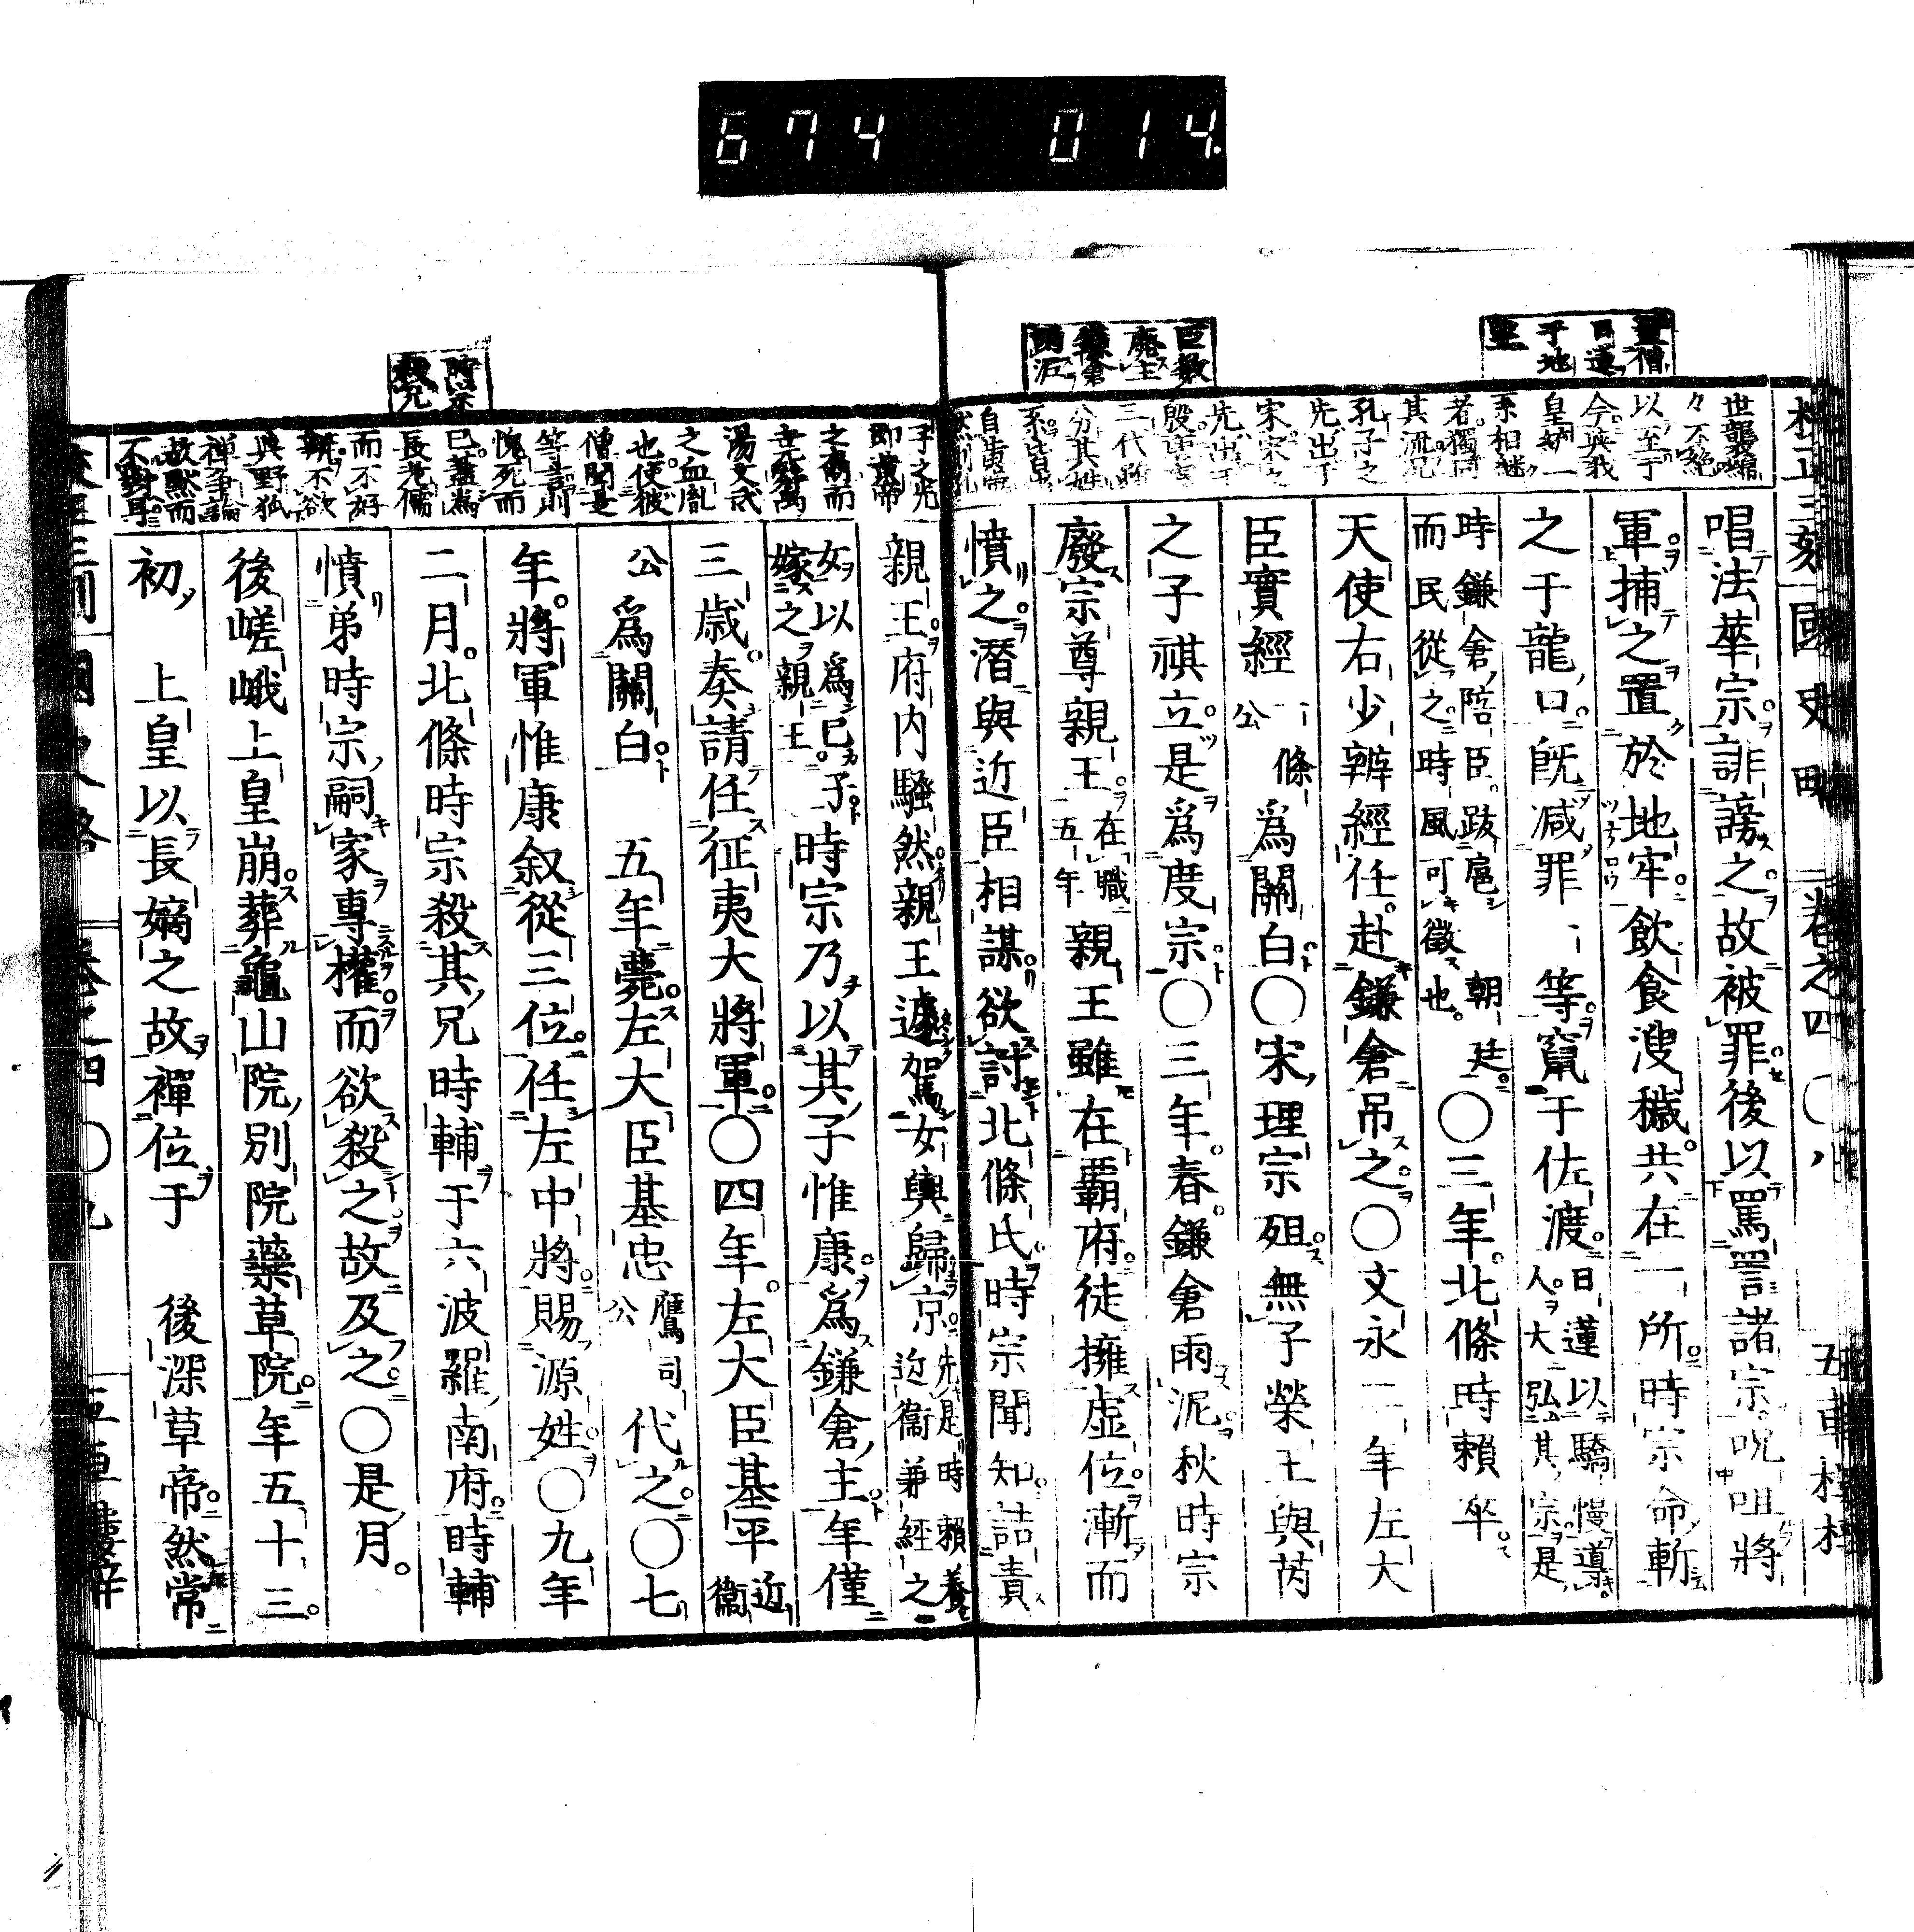 674 014
校正三刻 國史略 卷之四 〇八 五車樓梓
置僧
日蓮
于地
臣教
廢主
鎌倉
雨泥
世襲
々不絶
以至于
今與我
皇朝一
系相継
者獨
其流
孔子之
先出于
宋宋之
先出于
殷
三代
分其姓
自黄帝
唱法華宗誹謗之故被罪後以罵詈諸宗呪咀將
軍捕之置於地牢飲食溲穢共在一所時宗命斬
之于龍口既減罪一等竄于佐渡日蓮以驕慢導
人大弘其宗是
時鎌倉陪臣跋扈朝廷
而民從之時風可徵也〇三年北條時賴卒
天使右少辨經任赴鎌倉吊之〇文永二年左大
臣實經一條公爲關白〇宋理宗殂無子榮王與芮
之子祺立是爲度宗〇三年春鎌倉雨泥秋時宗
廢宗尊親王在職五年親王雖在覇府徒擁虚位漸而
憤之潛與近臣相謀欲討北條氏時宗聞知詰責
時宗
殺兄
子之先
即黄帝
之裔而
湯文武
之血胤
也使彼
僧聞是
等言則
愧死而
已蓋爲
長老儒
而不好
不欲
與野狐
禅争論
故黙而
不對耳
親王府内騷然親王遽駕女輿歸京先是時賴養
近衞兼經之
女以爲己子
嫁之親王時宗乃以其子惟康爲鎌倉主年僅
三歳奏請任征夷大將軍〇四年左大臣基平近衞
公爲關白 五年薨左大臣基忠鷹司公代之〇七
年將軍惟康叙從三位任左中將賜源姓〇九年
二月北條時宗殺其兄時輔于六波羅南府時輔
憤弟時宗嗣家專權而欲殺之故及之〇是月
後嵯峨上皇崩葬龜山院別院藥草院年五十三
初 上皇以長嫡之故禪位于 後深草帝然常